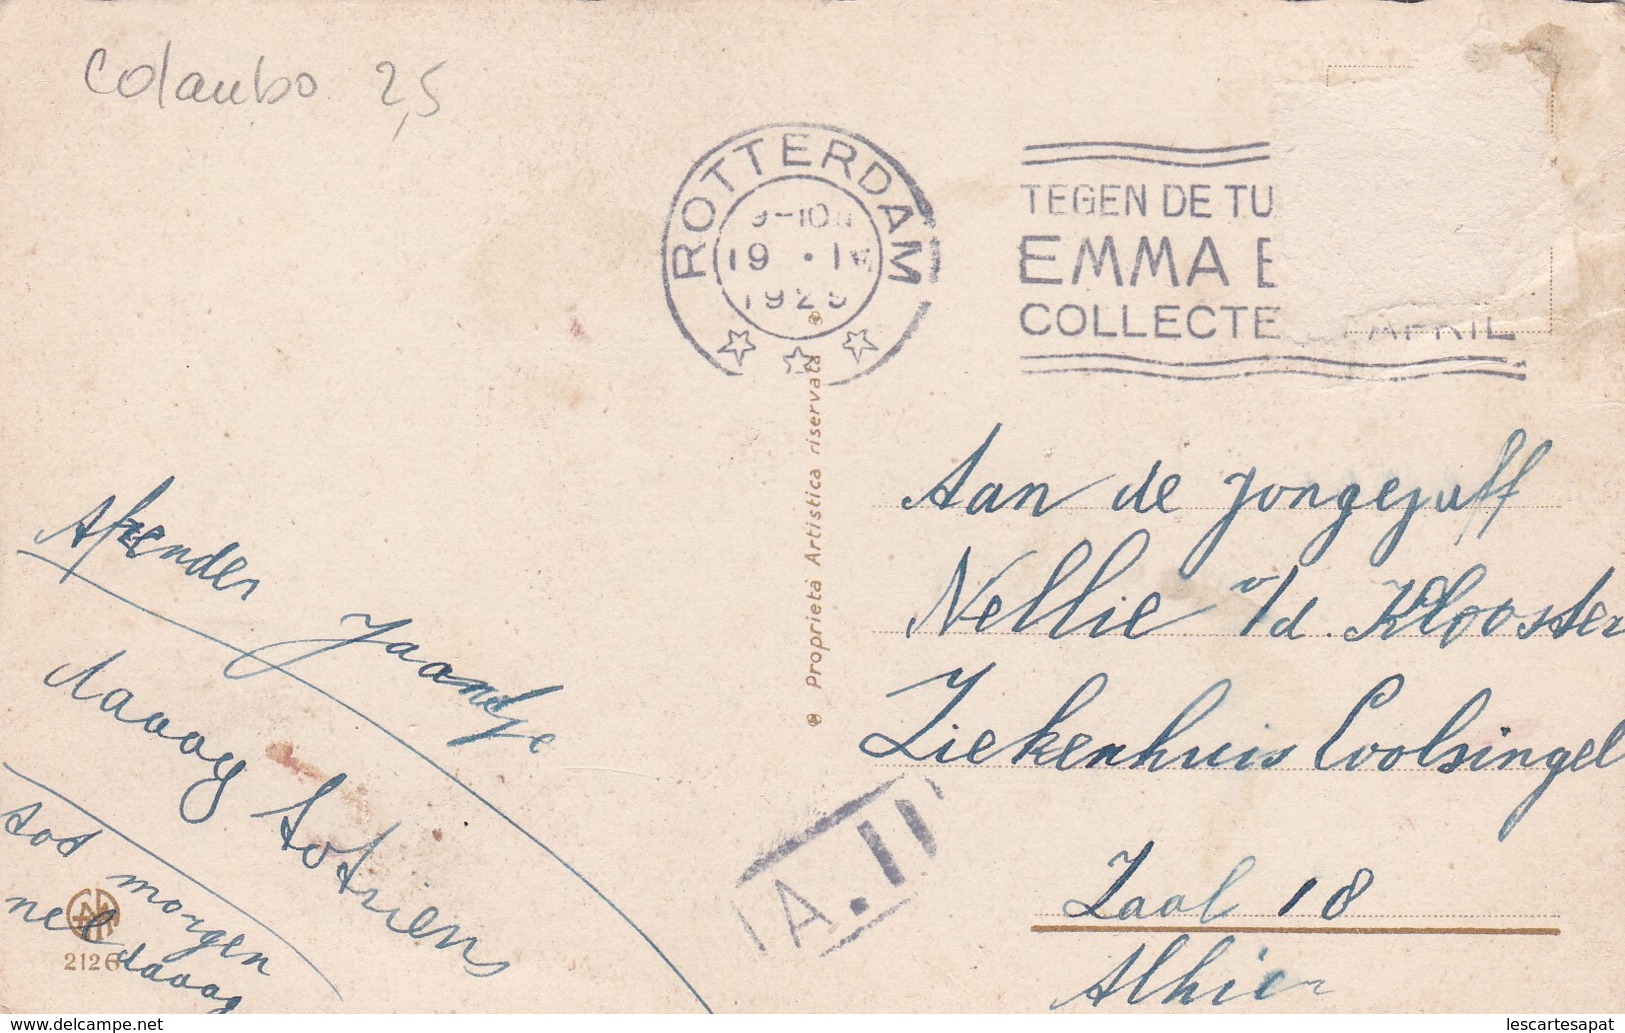 Colambo 2,5
ROTTERDAM
9-10
19 . IV
1925
TEGEN DE TU
EMMA
COLLECTE APRIL
® Proprietà Artistica riservata ®
Aan de Jongejuff
Nellie v/d. Klooster
Ziekenhuis Coolsingel
Zaal 18
Alhier
A.II
Afzender Jaantje
daaag Adriens
tod morgen
nel daaag
2126
delcampe.net
lescartesapat